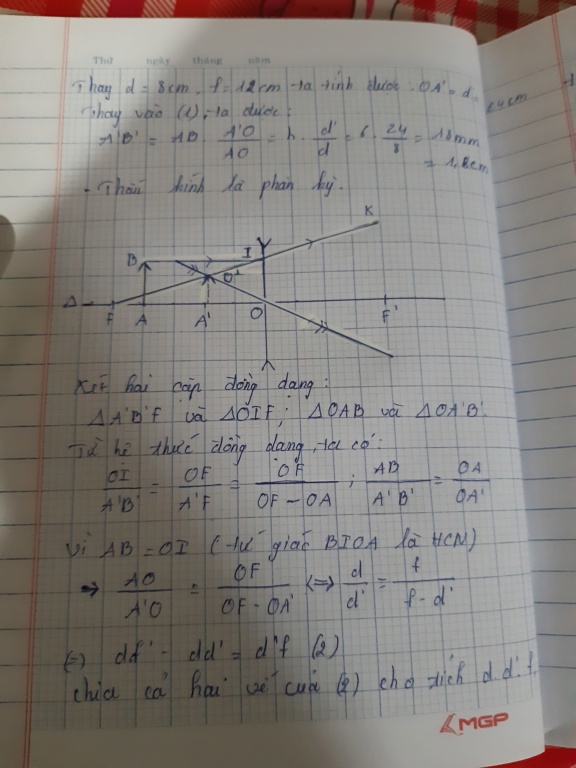 Thứ ngày tháng năm
Thay d = 8cm, f = 12cm ta tính được: OA' = d' = 24cm
Thay vào (1), ta được:
A'B' = AB. A'O/AO = h. d'/d = 6. 24/8 = 18mm
= 1,8cm
- Thấu kính là phân kỳ.
K
B I
B'
Δ F A A' O F'
Xét hai cặp đồng dạng:
Δ A'B'F và ΔOIF; ΔOAB và ΔOA'B'.
Từ hệ thức đồng dạng, ta có:
OI/A'B' = OF/A'F = OF/(OF - OA) ; AB/A'B' = OA/OA'
Vì AB = OI (tứ giác BIOA là HCN)
=> AO/A'O = OF/(OF - OA') <=> d/d' = f/(f - d')
(=) df - dd' = d'f (2)
chia cả hai vế của (2) cho tích d.d'.f,
MGP